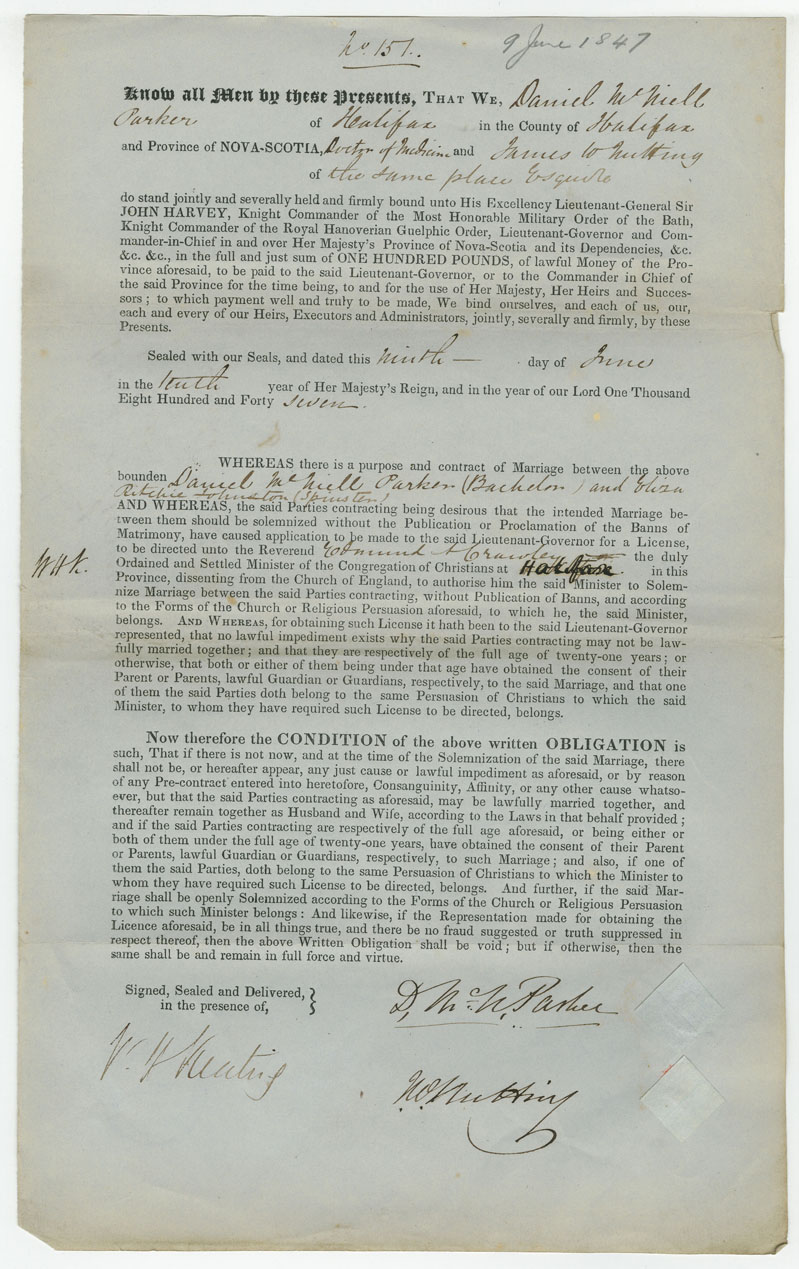 No. 151.
9 June 1847
Know all Men by these Presents, THAT WE, Daniel McNeill
Parker of Halifax in the County of Halifax
and Province of NOVA-SCOTIA, Doctor of Medicine and James W Nutting
of the same place Esquire
do stand jointly and severally held and firmly bound unto His Excellency Lieutenant-General Sir
JOHN HARVEY, Knight Commander of the Most Honorable Military Order of the Bath,
Knight Commander of the Royal Hanoverian Guelphic Order, Lieutenant-Governor and Com-
mander-in-Chief in and over Her Majesty's Province of Nova-Scotia and its Dependencies, &c.
&c. &c., in the full and just sum of ONE HUNDRED POUNDS, of lawful Money of the Pro-
vince aforesaid, to be paid to the said Lieutenant-Governor, or to the Commander in Chief of
the said Province for the time being, to and for the use of Her Majesty, Her Heirs and Succes-
sors; to which payment well and truly to be made, We bind ourselves, and each of us, our,
each and every of our Heirs, Executors and Administrators, jointly, severally and firmly, by these
Presents.
Sealed with our Seals, and dated this ninth — day of June
in the tenth year of Her Majesty's Reign, and in the year of our Lord One Thousand
Eight Hundred and Forty seven.
WHEREAS there is a purpose and contract of Marriage between the above
bounden Daniel McNeill Parker (Bachelor) and Eliza
Ritchie Johnston (Spinster)
AND WHEREAS, the said Parties contracting being desirous that the intended Marriage be-
tween them should be solemnized without the Publication or Proclamation of the Banns of
Matrimony, have caused application to be made to the said Lieutenant-Governor for a License,
to be directed unto the Reverend Edmund A Crawley the duly
W H K. Ordained and Settled Minister of the Congregation of Christians at Halifax. in this
Province, dissenting from the Church of England, to authorise him the said Minister to Solem-
nize Marriage between the said Parties contracting, without Publication of Banns, and according
to the Forms of the Church or Religious Persuasion aforesaid, to which he, the said Minister,
belongs. AND WHEREAS, for obtaining such License it hath been to the said Lieutenant-Governor
represented, that no lawful impediment exists why the said Parties contracting may not be law-
fully married together; and that they are respectively of the full age of twenty-one years; or
otherwise, that both or either of them being under that age have obtained the consent of their
Parent or Parents, lawful Guardian or Guardians, respectively, to the said Marriage, and that one
of them the said Parties doth belong to the same Persuasion of Christians to which the said
Minister, to whom they have required such License to be directed, belongs.
Now therefore the CONDITION of the above written OBLIGATION is
such, That if there is not now, and at the time of the Solemnization of the said Marriage, there
shall not be, or hereafter appear, any just cause or lawful impediment as aforesaid, or by reason
of any Pre-contract entered into heretofore, Consanguinity, Affinity, or any other cause whatso-
ever, but that the said Parties contracting as aforesaid, may be lawfully married together, and
thereafter remain together as Husband and Wife, according to the Laws in that behalf provided;
and if the said Parties contracting are respectively of the full age aforesaid, or being either or
both of them under the full age of twenty-one years, have obtained the consent of their Parent
or Parents, lawful Guardian or Guardians, respectively, to such Marriage; and also, if one of
them the said Parties, doth belong to the same Persuasion of Christians to which the Minister to
whom they have required such License to be directed, belongs. And further, if the said Mar-
riage shall be openly Solemnized according to the Forms of the Church or Religious Persuasion
to which such Minister belongs: And likewise, if the Representation made for obtaining the
Licence aforesaid, be in all things true, and there be no fraud suggested or truth suppressed in
respect thereof, then the above Written Obligation shall be void; but if otherwise, then the
same shall be and remain in full force and virtue.
Signed, Sealed and Delivered,
in the presence of,
D. McN. Parker
W H Keating
Nutting